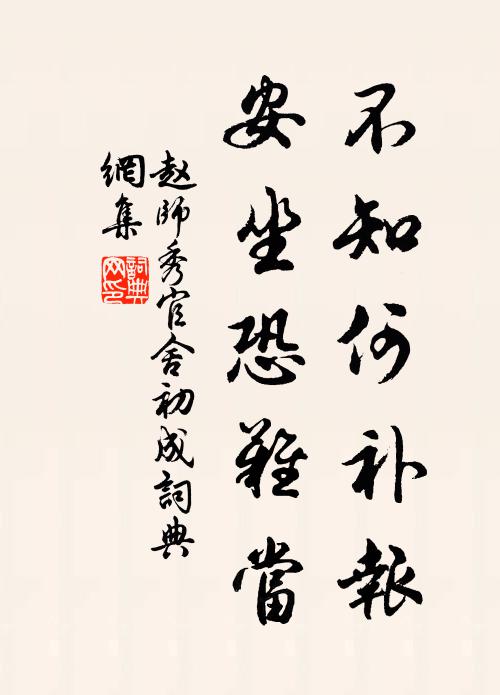 不知何补報
安坐恐難當
赵師秀官舍初成詞典
網集
詞典网印